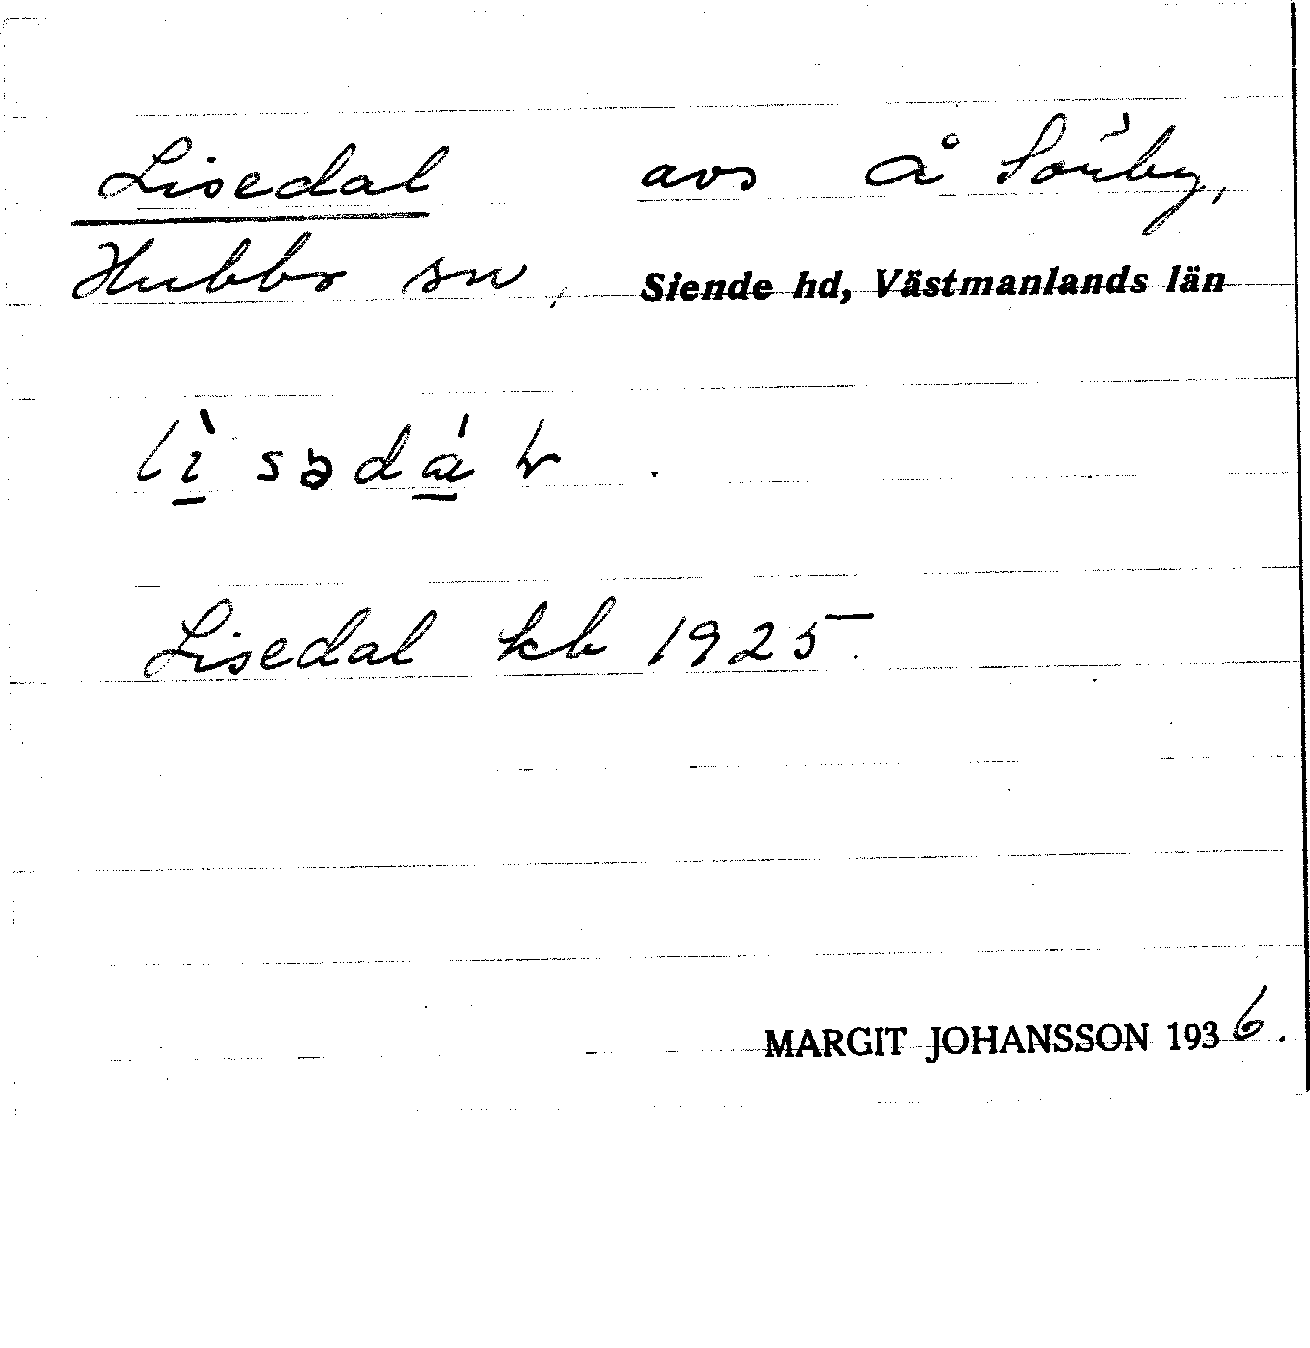 Lisedal avs å Sörby,
Hubbo sn, Siende hd, Västmanlands län
lìsədál
Lisedal kb 1925.
MARGIT JOHANSSON 1936.